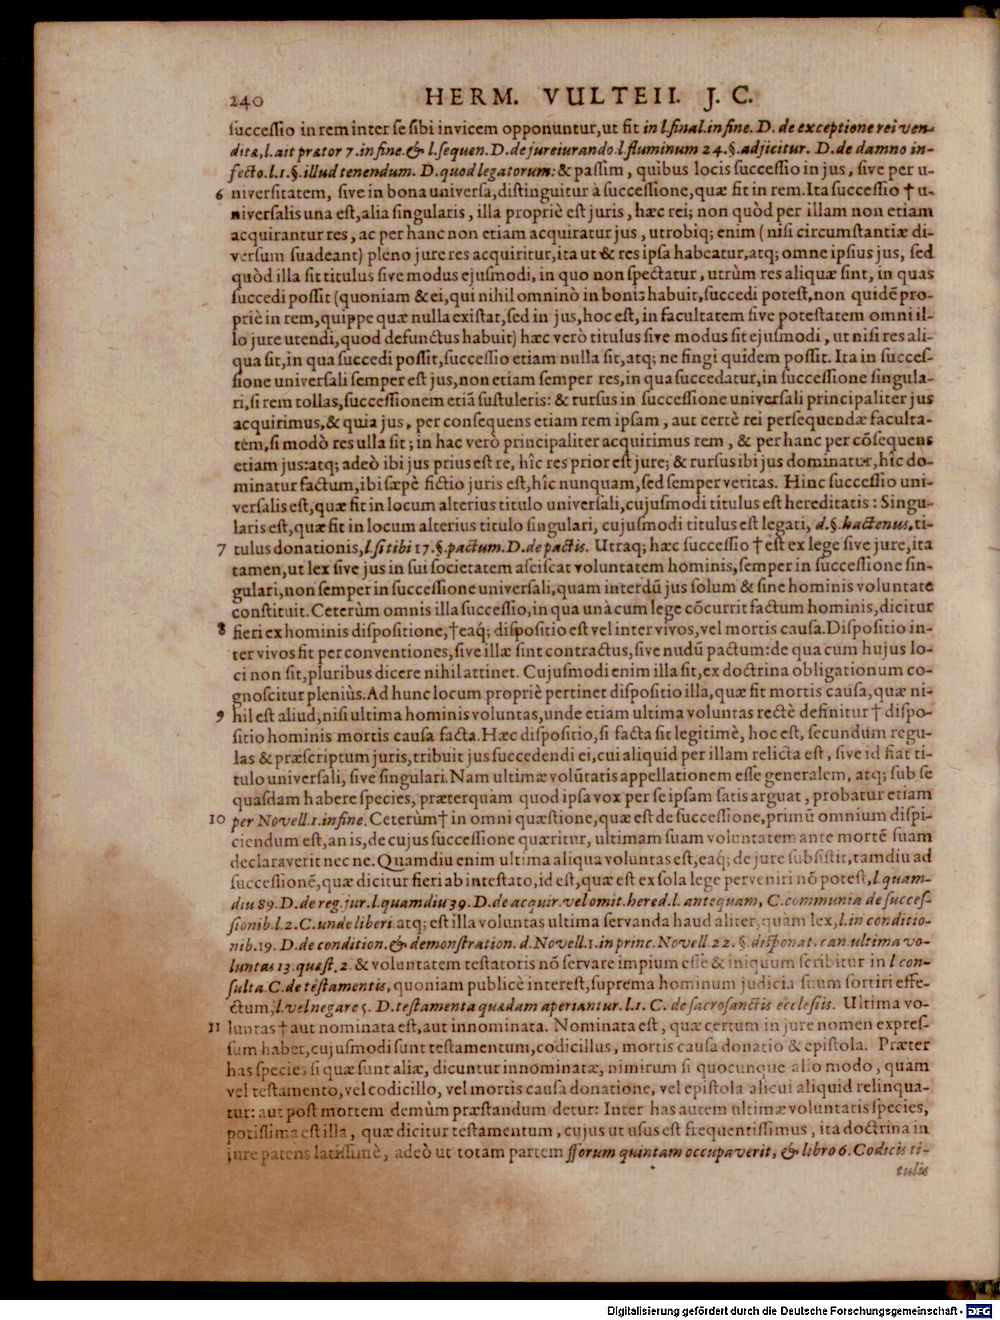 240 HERM. VULTEII. J. C.
ſucceſſio in rem inter ſe ſibi invicem opponuntur, ut fit in l. final. in fine. D. de exceptione rei ven-
ditæ, l. ait prætor 7. in fine. & l. ſequen. D. de jureiurando. l. fluminum 24. §. adjicitur. D. de damno in-
fecto. l. 1. §. illud tenendum. D. quod legatorum: & paſſim, quibus locis ſucceſſio in jus, ſive per u-
6 niverſitatem, ſive in bona univerſa, diſtinguitur à ſucceſſione, quæ fit in rem. Ita ſucceſſio † u-
niverſalis una eſt, alia ſingularis, illa propriè eſt juris, hæc rei; non quòd per illam non etiam
acquirantur res, ac per hanc non etiam acquiratur jus, utrobiq; enim (niſi circumſtantiæ di-
verſum ſuadeant) pleno jure res acquiritur, ita ut & res ipſa habeatur, atq; omne ipſius jus, ſed
quòd illa ſit titulus ſive modus ejuſmodi, in quo non ſpectatur, utrùm res aliquæ ſint, in quas
ſuccedi poſſit (quoniam & ei, qui nihil omninò in bonis habuit, ſuccedi poteſt, non quidẽ pro-
priè in rem, quippe quæ nulla exiſtat, ſed in jus, hoc eſt, in facultatem ſive poteſtatem omni il-
lo jure utendi, quod defunctus habuit) hæc verò titulus ſive modus ſit ejuſmodi, ut niſi res ali-
qua ſit, in qua ſuccedi poſſit, ſucceſſio etiam nulla ſit, atq; ne fingi quidem poſſit. Ita in ſucceſ-
ſione univerſali ſemper eſt jus, non etiam ſemper res, in qua ſuccedatur, in ſucceſſione ſingula-
ri, ſi rem tollas, ſucceſſionem etiã ſuſtuleris: & rurſus in ſucceſſione univerſali principaliter jus
acquirimus, & quia jus, per conſequens etiam rem ipſam, aut certè rei perſequendæ faculta-
tem, ſi modò res ulla ſit; in hac verò principaliter acquirimus rem, & per hanc per cõſequens
etiam jus: atq; adeò ibi jus prius eſt re, hîc res prior eſt jure; & rurſus ibi jus dominatur, hîc do-
minatur factum, ibi ſæpè fictio juris eſt, hîc nunquam, ſed ſemper veritas. Hinc ſucceſſio uni-
verſalis eſt, quæ fit in locum alterius titulo univerſali, cujuſmodi titulus eſt hereditatis: Singu-
laris eſt, quæ fit in locum alterius titulo ſingulari, cujuſmodi titulus eſt legati, d. §. hactenus, ti-
7 tulus donationis, l. ſi tibi 17. §. pactum. D. de pactis. Utraq; hæc ſucceſſio † eſt ex lege ſive jure, ita
tamen, ut lex ſive jus in ſui ſocietatem aſciſcat voluntatem hominis, ſemper in ſucceſſione ſin-
gulari, non ſemper in ſucceſſione univerſali, quam interdũ jus ſolum & ſine hominis voluntate
conſtituit. Ceterùm omnis illa ſucceſſio, in qua unà cum lege cõcurrit factum hominis, dicitur
8 fieri ex hominis diſpoſitione, † eaq; diſpoſitio eſt vel inter vivos, vel mortis cauſa. Diſpoſitio in-
ter vivos fit per conventiones, ſive illæ ſint contractus, ſive nudũ pactum: de qua cum hujus lo-
ci non ſit, pluribus dicere nihil attinet. Cujuſmodi enim illa ſit, ex doctrina obligationum co-
gnoſcitur pleniùs. Ad hunc locum propriè pertinet diſpoſitio illa, quæ fit mortis cauſa, quæ ni-
9 hil eſt aliud, niſi ultima hominis voluntas, unde etiam ultima voluntas rectè definitur † diſpo-
ſitio hominis mortis cauſa facta. Hæc diſpoſitio, ſi facta ſit legitimè, hoc eſt, ſecundum regu-
las & præſcriptum juris, tribuit jus ſuccedendi ei, cui aliquid per illam relicta eſt, ſive id fiat ti-
tulo univerſali, ſive ſingulari. Nam ultimæ volũtatis appellationem eſſe generalem, atq; ſub ſe
quaſdam habere ſpecies, præterquàm quod ipſa vox per ſe ipſam ſatis arguat, probatur etiam
10 per Novell. 1. in fine. Ceterùm † in omni quæſtione, quæ eſt de ſucceſſione, primũ omnium diſpi-
ciendum eſt, an is, de cujus ſucceſſione quæritur, ultimam ſuam voluntatem ante mortẽ ſuam
declaraverit nec ne. Quamdiu enim ultima aliqua voluntas eſt, eaq; de jure ſubſiſtit, tamdiu ad
ſucceſſionẽ, quæ dicitur fieri ab inteſtato, id eſt, quæ eſt ex ſola lege perveniri nõ poteſt, l. quam-
diu 89. D. de reg. jur. l. quamdiu 39. D. de acquir. vel omit. hered. l. antequam, C. communia de ſucceſ-
ſionib. l. 2. C. unde liberi. atq; eſt illa voluntas ultima ſervanda haud aliter, quàm lex, l. in conditio-
nib. 19. D. de condition. & demonſtration. d. Novell. 1. in princ. Novell. 22. §. diſponat. can. ultima vo-
luntas 13. quæſt. 2. & voluntatem teſtatoris nõ ſervare impium eſſe & iniquum ſcribitur in l. con-
ſulta. C. de teſtamentis, quoniam publicè intereſt, ſuprema hominum judicia ſuum ſortiri effe-
ctum, l. vel negare 5. D. teſtamenta quædam aperiantur. l. 1. C. de ſacroſanctis eccleſiis. Ultima vo-
11 luntas † aut nominata eſt, aut innominata. Nominata eſt, quæ certum in jure nomen expreſ-
ſum habet, cujuſmodi ſunt teſtamentum, codicillus, mortis cauſa donatio & epiſtola. Præter
has ſpecies ſi quæ ſunt aliæ, dicuntur innominatæ, nimirum ſi quocunque alio modo, quàm
vel teſtamento, vel codicillo, vel mortis cauſa donatione, vel epiſtola alicui aliquid relinqua-
tur: aut poſt mortem demùm præſtandum detur: Inter has autem ultimæ voluntatis ſpecies,
potiſſima eſt illa, quæ dicitur teſtamentum, cujus ut uſus eſt frequentiſſimus, ita doctrina in
jure patens latiſſimè, adeò ut totam partem ff̃orum quintam occupaverit, & libro 6. Codicis ti-
tulis
Digitalisierung gefördert durch die Deutsche Forschungsgemeinschaft - DFG